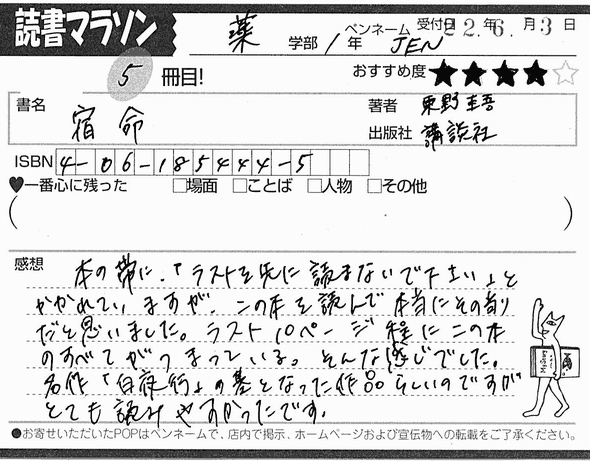 読書マラソン
薬 学部 1年 ペンネーム JEN 受付日 22年6月3日
5 冊目!
おすすめ度 ★★★★☆
書名 宿命
著者 東野圭吾
出版社 講談社
ISBN 4-06-185444-5
♥一番心に残った □場面 □ことば □人物 □その他
( )
感想
本の帯に、「ラストを先に読まないで下さい」と
かかれていますが、この本を読んで本当にその通り
だと思いました。ラスト10ページ程にこの本
のすべてがつまっている。そんな感じでした。
名作「白夜行」の基となった作品らしいのですが
とても読みやすかったです。
●お寄せいただいたPOPはペンネームで、店内で掲示、ホームページおよび宣伝物への転載をご了承ください。